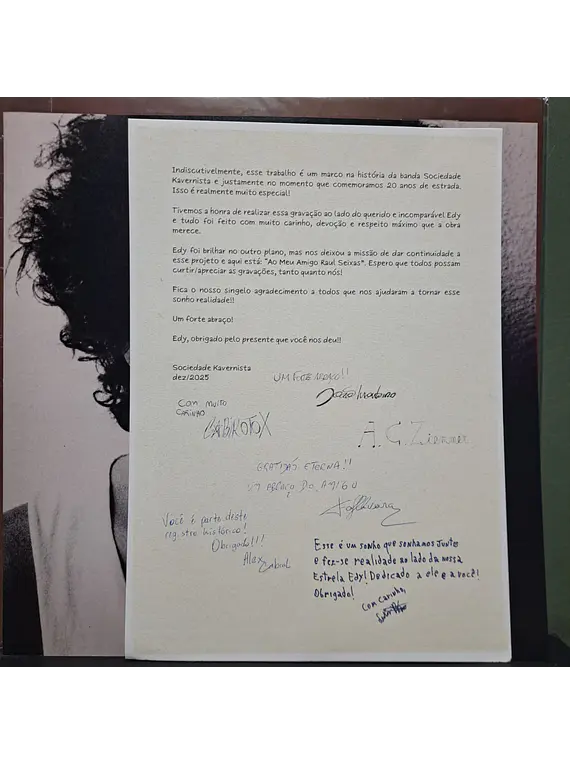 Indiscutivelmente, esse trabalho é um marco na história da banda Sociedade
Kavernista e justamente no momento que comemoramos 20 anos de estrada.
Isso é realmente muito especial!
Tivemos a honra de realizar essa gravação ao lado do querido e incomparável Edy
e tudo foi feito com muito carinho, devoção e respeito máximo que a obra
merece.
Edy foi brilhar no outro plano, mas nos deixou a missão de dar continuidade a
esse projeto e aqui está: "Ao Meu Amigo Raul Seixas". Espero que todos possam
curtir/apreciar as gravações, tanto quanto nós!
Fica o nosso singelo agradecimento a todos que nos ajudaram a tornar esse
sonho realidade!!
Um forte abraço!
Edy, obrigado pelo presente que você nos deu!!
Sociedade Kavernista
dez/2025
UM FORTE ABRAÇO!!
Com muito
CARINHO
A. C. Zimmer
GRATIDÃO ETERNA!!
ABRAÇO DO AMIGO
Você é parte deste
registro histórico!
Obrigado!!!
Alex Cabral
Esse é um sonho que sonhamos juntos
e fez-se realidade ao lado da nossa
Estrela Edy! Dedicado a ele e a você!
Obrigado!
Com carinho,